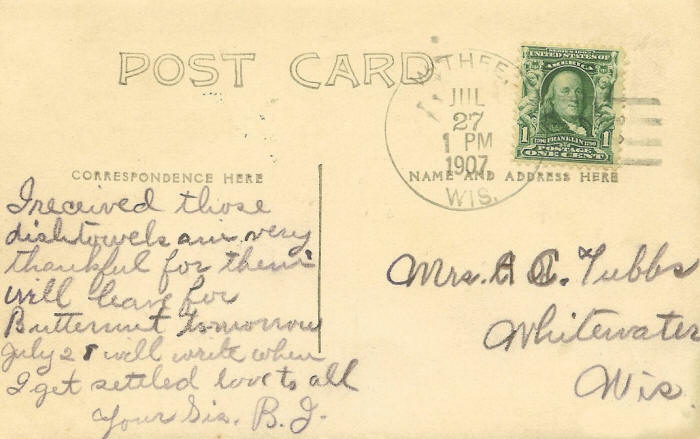 POST CARD
THEE
JUL
27
1 PM
1907
WIS.
SERIES 1902
UNITED STATES OF
AMERICA
1 1706 FRANKLIN 1790 1
POSTAGE
ONE CENT
CORRESPONDENCE HERE
NAME AND ADDRESS HERE
I received those
dishtowels am very
thankful for them
will leave for
Butternut tomorrow
July 28 will write when
I get settled love to all
Your Sis. B. J.
Mrs. A C. Tubbs
Whitewater
Wis.